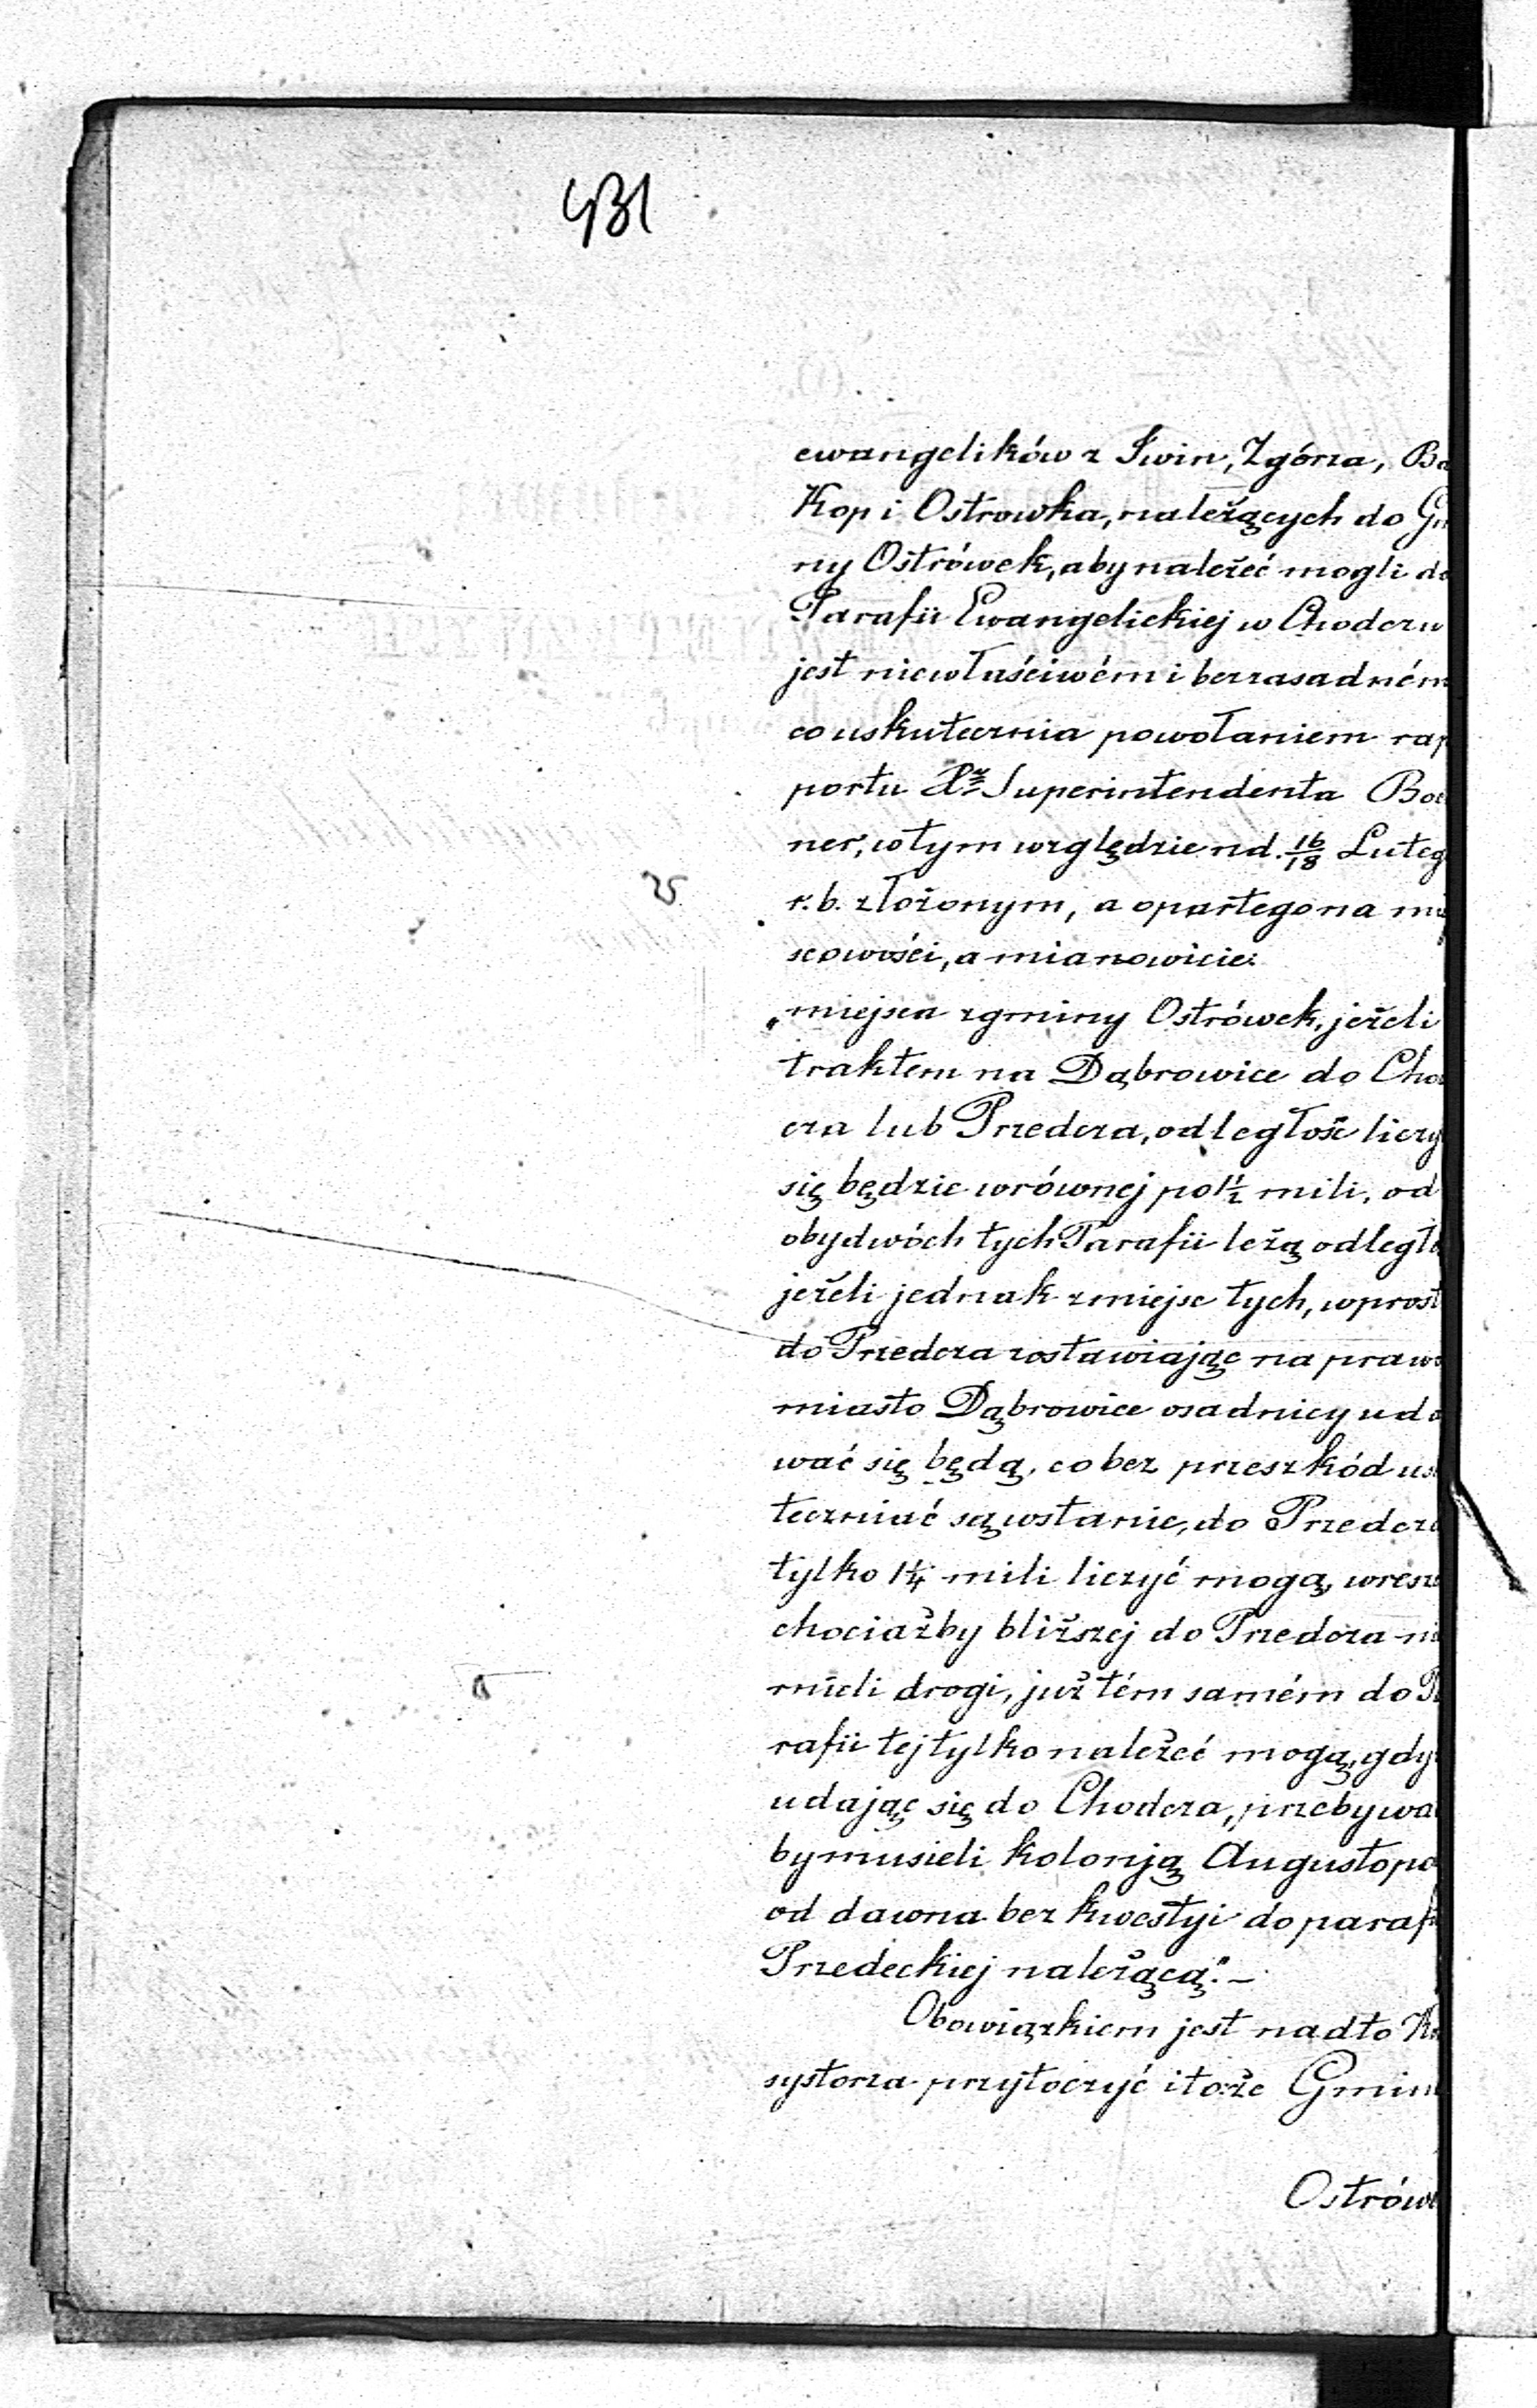 431
ewangelików z Iwin, Zgórza, Ba
Kop i Ostrowka, należących do Gm
ny Ostrówek, aby należeć mogli do
Parafii Ewangelickiej w Chodczu
jest niewłaściwém i bezzasadném
co uskutecznia powołaniem rap
portu Superintendenta Boe
ner, w tym względzie nd. 16/18 Luteg
r. b. złożonym, a opartego na mie
scowości, a mianowicie:
„miejsca z gminy Ostrówek, jeżeli
traktem na Dąbrowice do Cho
cza lub Przedcza, odległość liczy
się będzie w równej po 1½ mili, od
obydwóch tych Parafii leżą odległo
jeżeli jednak z miejsc tych, wprost
do Przedcza zostawiając na prawo
miasto Dąbrowice osadnicy uda
wać się będą, co bez przeszkód us
teczniać są w stanie, do Przedcza
tylko 1¼ mili liczyć mogą, wresz
chociażby bliższej do Przedcza nie
mieli drogi, już tém samém do Pa
rafii tej tylko należeć mogą, gdy
udając się do Chodcza, przebywa
by musieli koloniją Augustopo
od dawna bez kwestyi do parafi
Przedeckiej należącą." –
Obowiązkiem jest nadto Ko
systorza przytoczyć i to że Gmin
Ostrówe